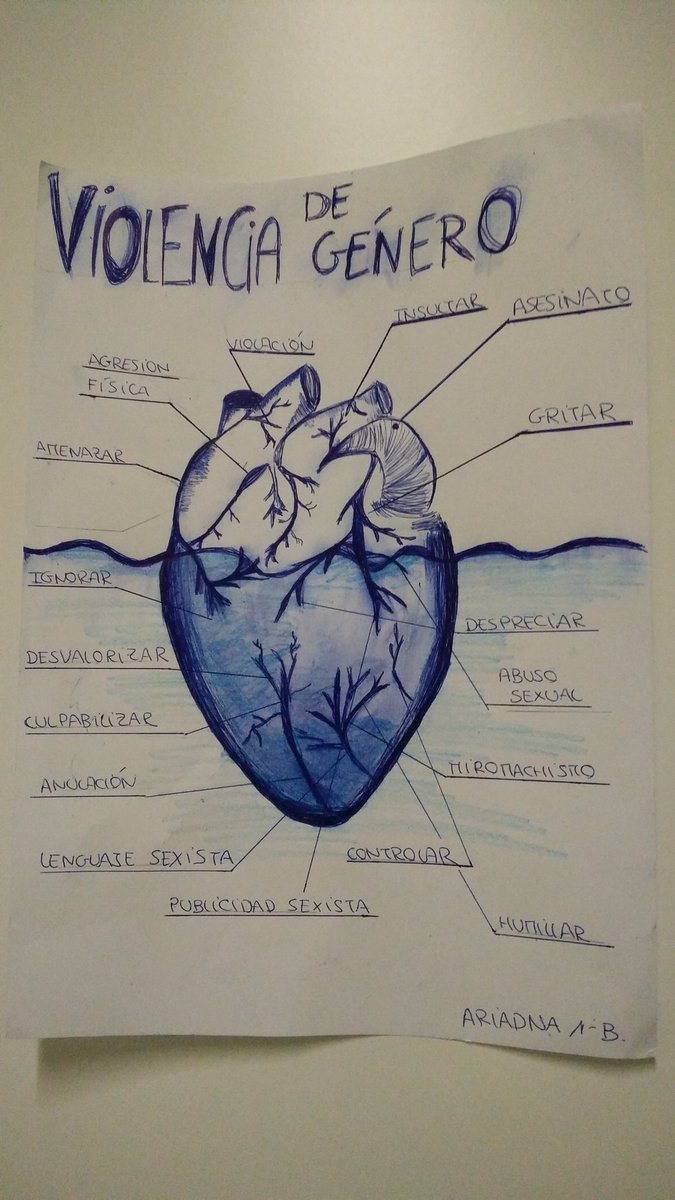 VIOLENCIA DE GÉNERO
INSULTAR
ASESINATO
VIOLACIÓN
AGRESION
FÍSICA
GRITAR
AMENAZAR
IGNORAR
DESPRECIAR
DESVALORIZAR
ABUSO
SEXUAL
CULPABILIZAR
MIROMACHISMO
ANULACIÓN
LENGUAJE SEXISTA
CONTROLAR
PUBLICIDAD SEXISTA
HUMILLAR
ARIADNA 1-B.